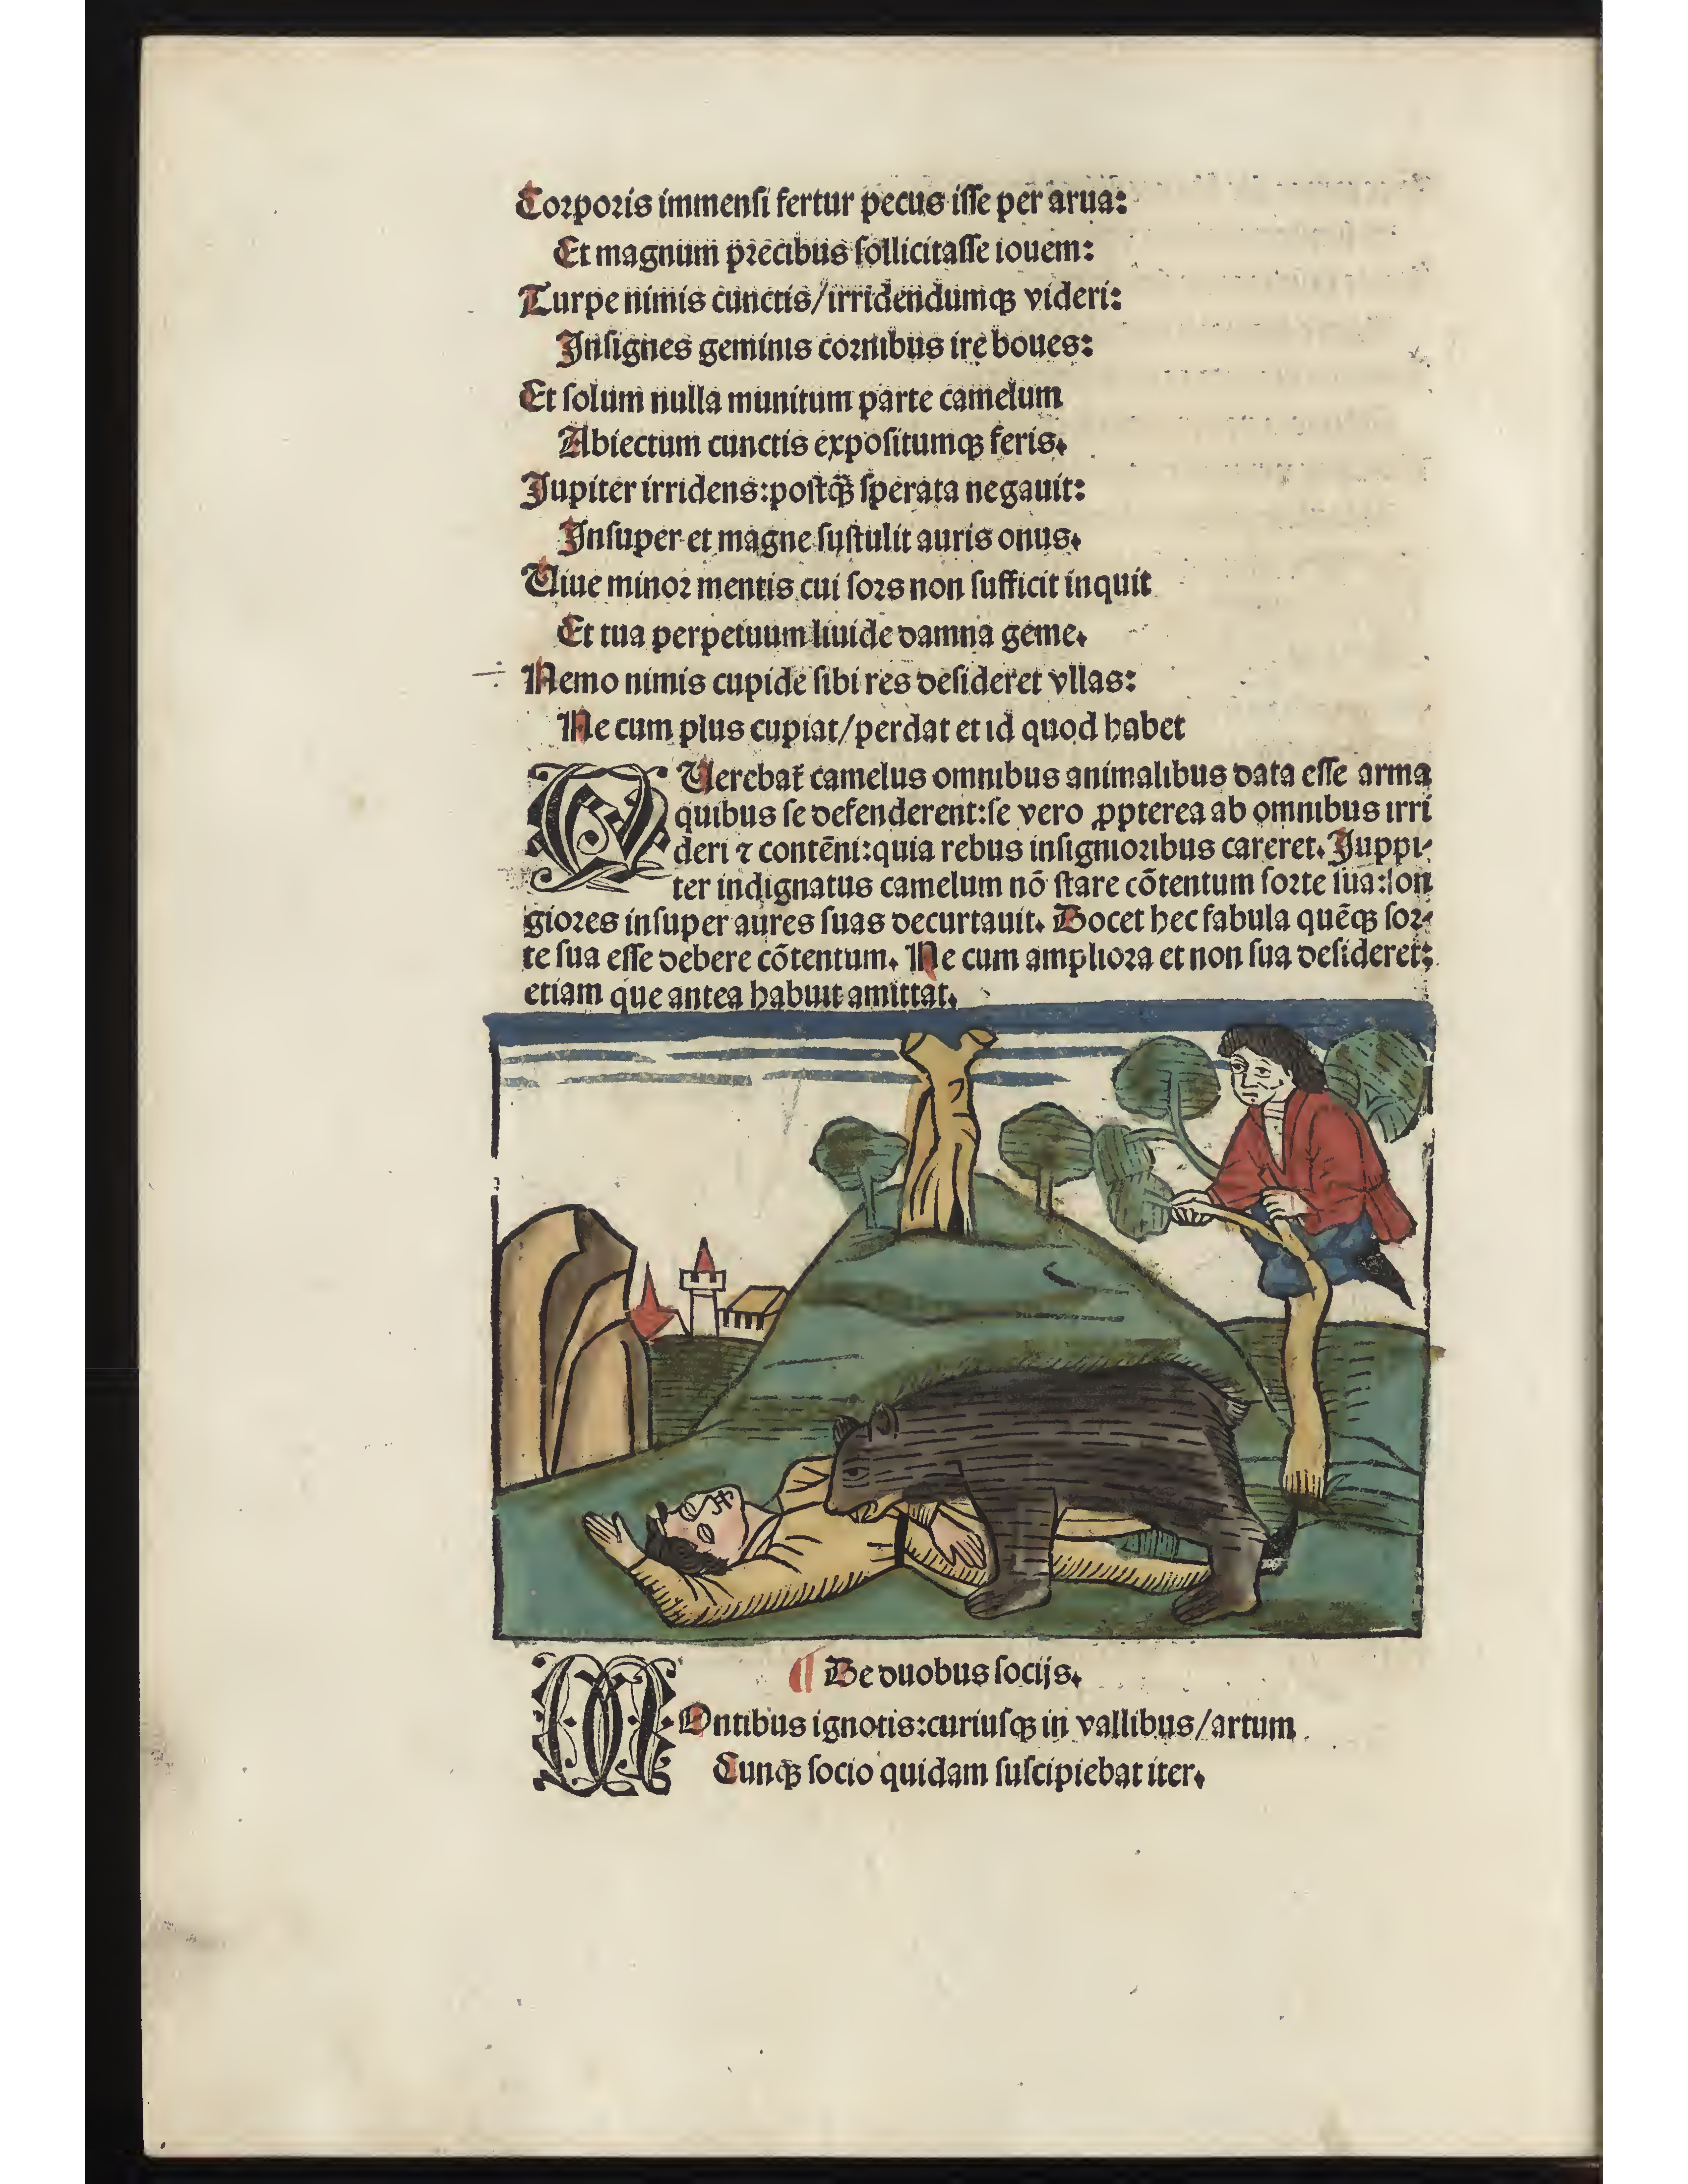 Corporis immenſi fertur pecus iſſe per arua:
Et magnum precibus ſollicitaſſe iouem:
Turpe nimis cunctis/irridendumqꝫ videri:
Inſignes geminis cornibus ire boues:
Et ſolum nulla munitum parte camelum
Abiectum cunctis expoſitumqꝫ feris.
Jupiter irridens:poſtqꝫ̃ ſperata negauit:
Inſuper et magne ſuſtulit auris onus.
Uiue minor mentis cui ſors non ſufficit inquit
Et tua perpetuum liuide damna geme.
Nemo nimis cupide ſibi res deſideret vllas:
Ne cum plus cupiat/perdat et id quod habet
QUerebat᷑ camelus omnibus animalibus data eſſe arma
quibus ſe defenderent:ſe vero ꝓpterea ab omnibus irri
deri ⁊ contēni:quia rebus inſignioribus careret. Juppi⸗
ter indignatus camelum nō ſtare cōtentum ſorte ſua:lon
giores inſuper aures ſuas decurtauit. Docet hec fabula quēqꝫ ſor⸗
te ſua eſſe debere cōtentum. Ne cum ampliora et non ſua deſideret:
etiam que antea habuit amittat.
¶ De duobus ſocijs.
MOntibus ignotis:curiuſqꝫ in vallibus/artum
Cunqꝫ ſocio quidam ſuſcipiebat iter.